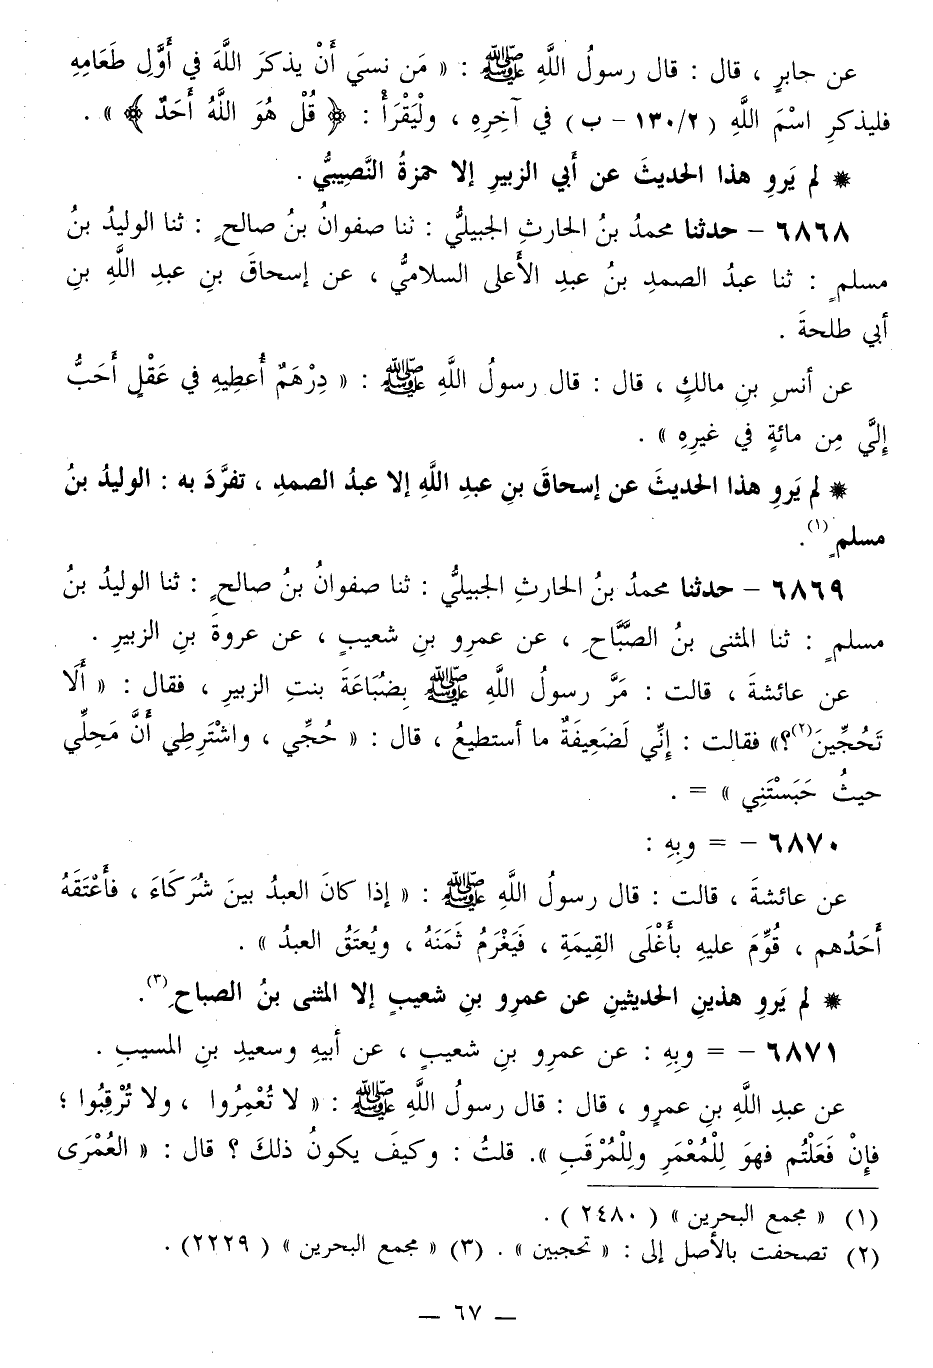 عن جابرٍ ، قال : قال رسولُ اللَّهِ ﷺ : « مَن نسيَ أَنْ يذكرَ اللَّهَ في أَوَّلِ طَعَامِهِ
فليذكرِ اسْمَ اللَّهِ ( ١٣٠/٢ - ب ) في آخِرِهِ ، ولْيَقْرَأْ : ﴿ قُلْ هُوَ اللَّهُ أَحَدٌ ﴾ » .
* لم يَروِ هذا الحديثَ عن أبي الزبيرِ إلا حمزةُ النَّصِيبيُّ .
٦٨٦٨ - حدثنا محمدُ بنُ الحارثِ الجبيليُّ : ثنا صفوانُ بنُ صالحٍ : ثنا الوليدُ بنُ
مسلمٍ : ثنا عبدُ الصمدِ بنُ عبدِ الأَعلى السلاميُّ ، عن إسحاقَ بنِ عبدِ اللَّهِ بنِ
أبي طلحةَ .
عن أنسِ بنِ مالكٍ ، قال : قال رسولُ اللَّهِ ﷺ : « دِرْهَمٌ أُعطِيهِ في عَقْلٍ أَحَبُّ
إِليَّ مِن مائةٍ في غيرِهِ » .
* لم يَروِ هذا الحديثَ عن إسحاقَ بنِ عبدِ اللَّهِ إلا عبدُ الصمدِ ، تفرَّدَ به : الوليدُ بنُ
مسلمٍ(١).
٦٨٦٩ - حدثنا محمدُ بنُ الحارثِ الجبيليُّ : ثنا صفوانُ بنُ صالحٍ : ثنا الوليدُ بنُ
مسلمٍ : ثنا المثنى بنُ الصَّبَّاحِ ، عن عمرِو بنِ شعيبٍ ، عن عروةَ بنِ الزبيرِ .
عن عائشةَ ، قالت : مَرَّ رسولُ اللَّهِ ﷺ بِضُبَاعَةَ بنتِ الزبيرِ ، فقال : « أَلَا
تَحُجِّينَ(٢)؟» فقالت : إنِّي لَضَعِيفَةٌ ما أستطيعُ ، قال : « حُجِّي ، واشْتَرِطِي أَنَّ مَحِلِّي
حيثُ حَبَسْتَنِي » = .
٦٨٧٠ - = وبِهِ :
عن عائشةَ ، قالت : قال رسولُ اللَّهِ ﷺ : « إذا كانَ العبدُ بينَ شُرَكَاءَ ، فأَعْتَقَهُ
أَحَدُهم ، قُوِّمَ عليهِ بأَغْلَى القِيمَةِ ، فَيَغْرَمُ ثَمَنَهُ ، ويُعتَقُ العبدُ » .
* لم يَروِ هذينِ الحديثينِ عن عمرِو بنِ شعيبٍ إلا المثنى بنُ الصباحِ(٣).
٦٨٧١ - = وبِهِ : عن عمرِو بنِ شعيبٍ ، عن أبيهِ وسعيدِ بنِ المسيبِ .
عن عبدِ اللَّهِ بنِ عمرٍو ، قال : قال رسولُ اللَّهِ ﷺ : « لا تُعْمِرُوا ، ولا تُرْقِبُوا ؛
فإِنْ فَعَلْتُم فهوَ لِلْمُعْمَرِ ولِلْمُرْقَبِ ». قلتُ : وكيفَ يكونُ ذلكَ ؟ قال : « العُمْرَى
(١) « مجمع البحرين » ( ٢٤٨٠ ) .
(٢) تصحفت بالأصل إلى : « تحجبين » . (٣) « مجمع البحرين » ( ٢٢٢٩ ) .
— ٦٧ —